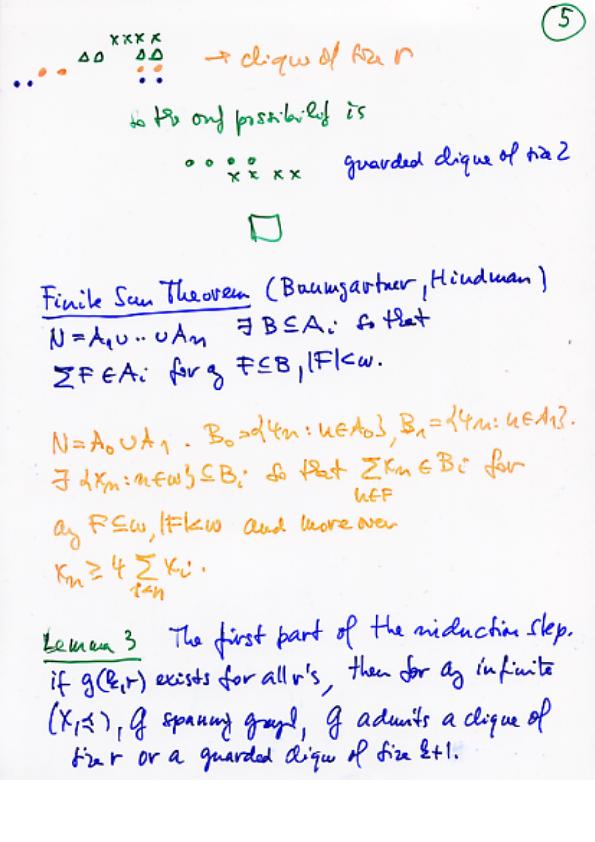 5
→ clique of size r
so the only possibility is
guarded clique of size 2
Finite Sum Theorem (Baumgartner, Hindman)
N = A₁∪··∪Aₙ ∃ B⊆Aᵢ so that
ΣF∈Aᵢ for any F⊆B, |F|<ω.
N=A₀∪A₁. B₀={4n : n∈A₀}, B₁={4n : n∈A₁}.
∃ {xₙ : n∈ω}⊆Bᵢ so that Σxₙ∈Bᵢ for
n∈F
any F⊆ω, |F|<ω and moreover
xₙ ≥ 4 Σ xᵢ.
i<n
Lemma 3 The first part of the induction step.
if g(k,r) exists for all r's, then for any infinite
(X,≼), G spanning graph, G admits a clique of
size r or a guarded clique of size k+1.